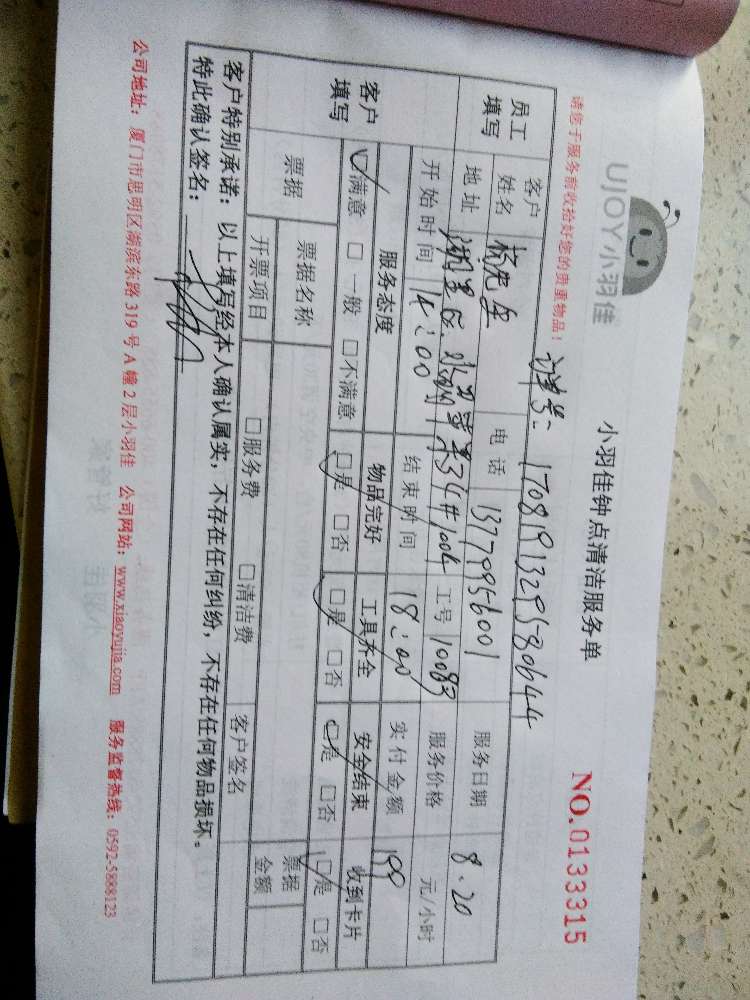 UJOY小羽佳
小羽佳钟点清洁服务单
NO.0133315
请您于服务前收拾好您的贵重物品！
订单号：17081913295780644
员工填写 客户姓名 杨先生 电话 13779956001 服务日期 8.20
地址 湖里区 34#1004 工号 10083 服务价格 元/小时
开始时间 14:00 结束时间 18:00 实付金额 199
客户填写 服务态度 物品完好 工具齐全 安全结束 收到卡片
☑满意 □一般 □不满意 ☑是 □否 ☑是 □否 ☑是 □否 ☑是 □否
票据 票据名称 票据金额
开票项目 □服务费 □清洁费 客户签名
客户特别承诺：以上填写经本人确认属实，不存在任何纠纷，不存在任何物品损坏。
特此确认签名：
公司地址：厦门市思明区湖滨东路319号A幢2层小羽佳 公司网站：www.xiaoyujia.com 服务监督热线：0592-5888123